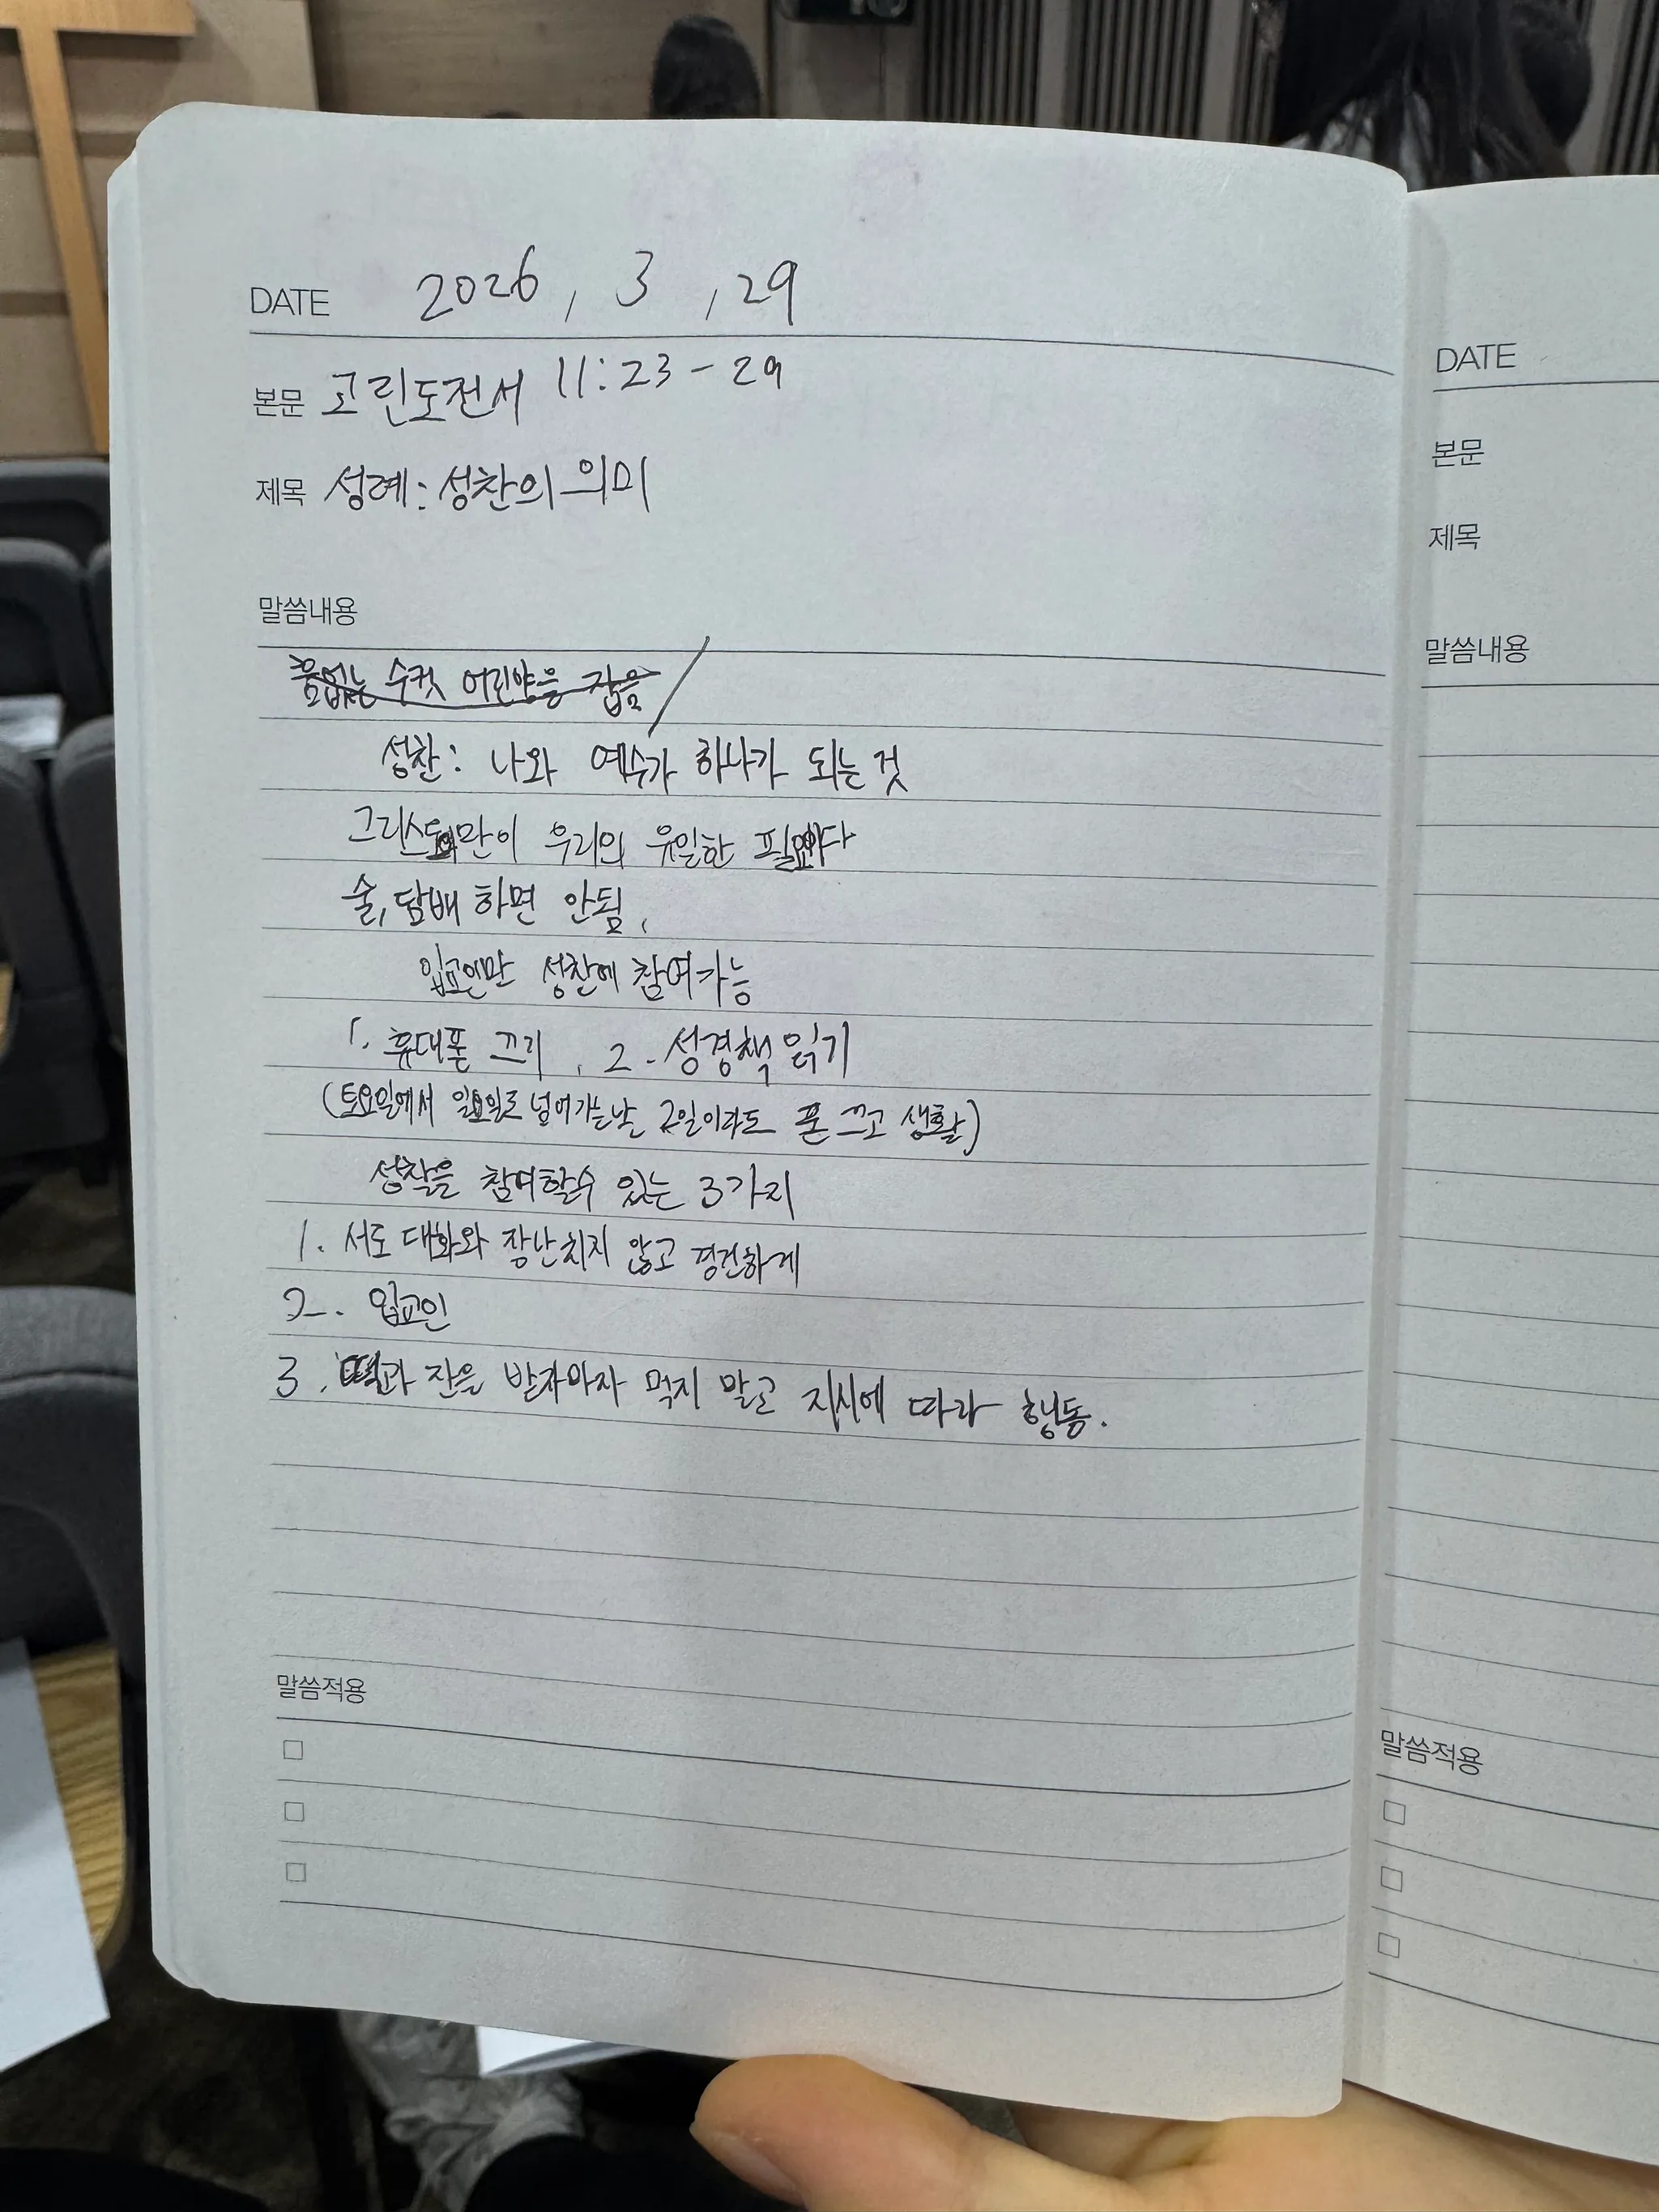 DATE 2026, 3, 29
본문 고린도전서 11:23-29
제목 성례: 성찬의 의미
말씀내용
흠없는 수컷 어린양을 잡음
성찬: 나와 예수가 하나가 되는 것
그리스도만이 우리의 유일한 필요이다
술, 담배 하면 안됨,
입교인만 성찬에 참여가능
1. 휴대폰 끄기, 2. 성경책 읽기
(토요일에서 일요일로 넘어가는날 2일이라도 폰 끄고 생활)
성찰을 참여할수 있는 3가지
1. 서로 대화와 장난치지 않고 경건하게
2. 입교인
3. 떡과 잔을 받자마자 먹지 말고 지시에 따라 행동.
말씀적용
DATE
본문
제목
말씀내용
말씀적용